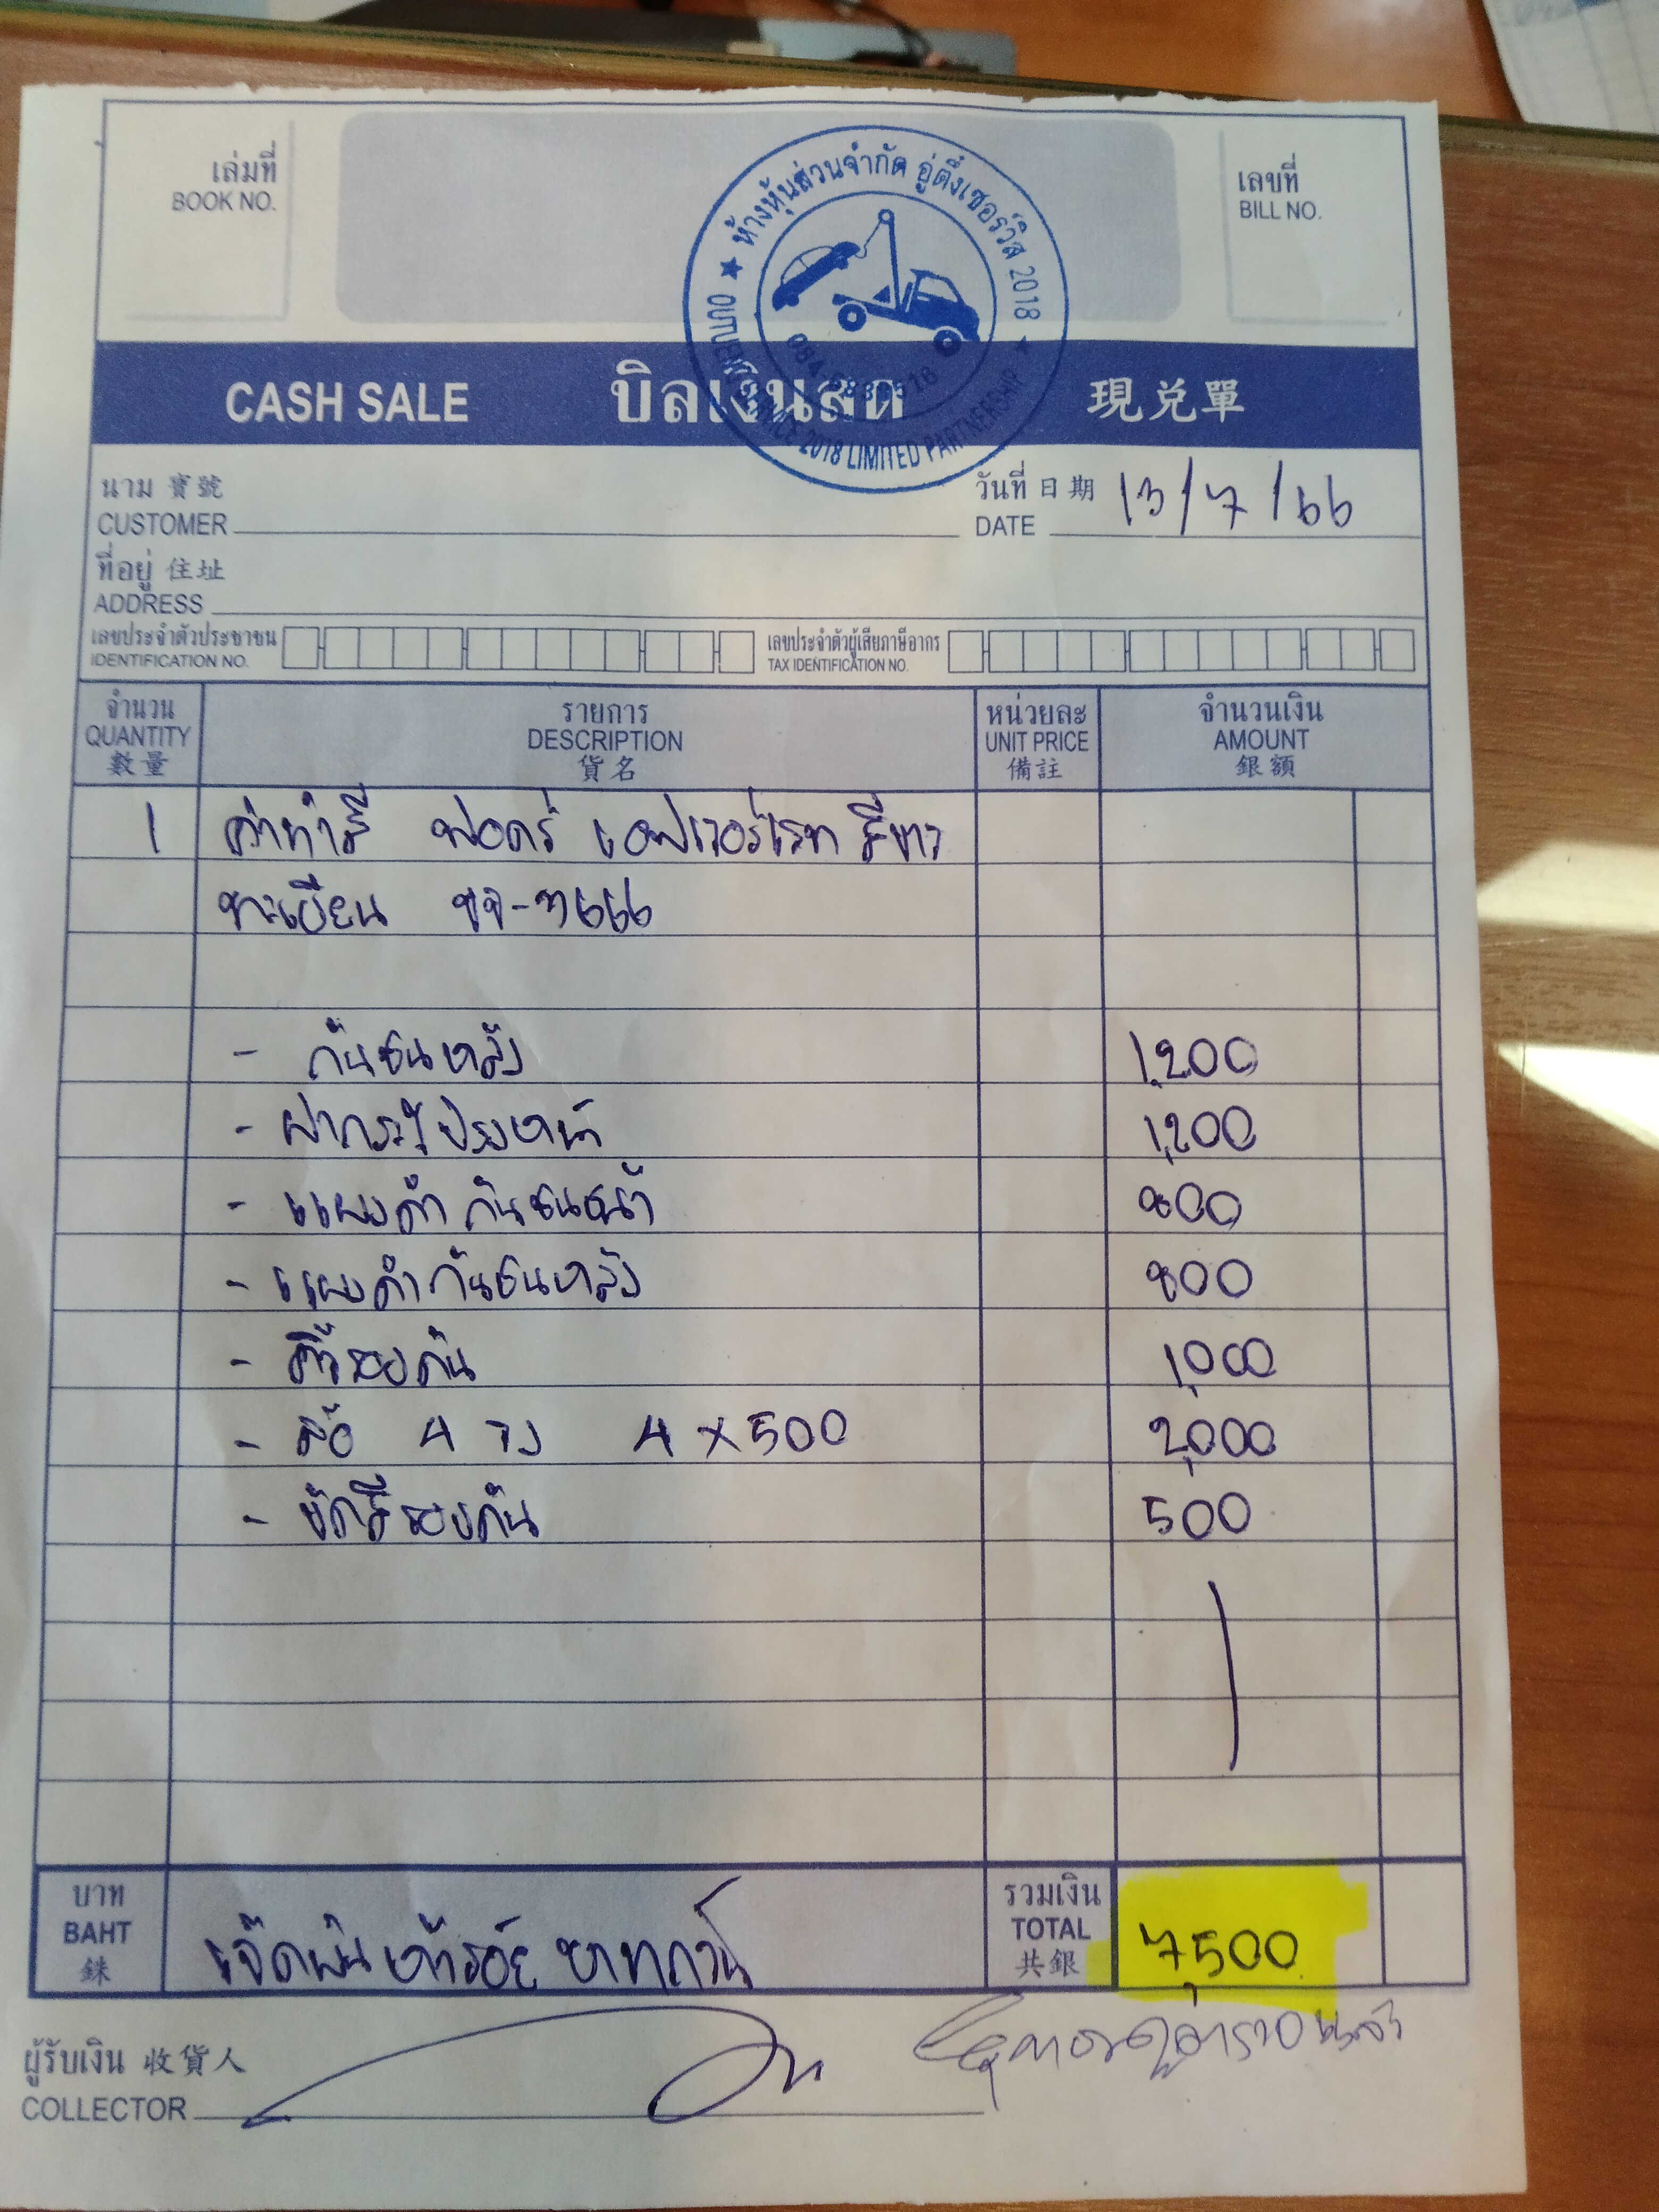 เล่มที่
BOOK NO.
เลขที่
BILL NO.
★ ห้างหุ้นส่วนจำกัด อู่ตึ๋งเซอร์วิส 2018 ★
SERVICE 2018 LIMITED PARTNERSHIP
CASH SALE บิลเงินสด 現兌單
นาม 寶號
CUSTOMER
วันที่ 日期 13/7/66
DATE
ที่อยู่ 住址
ADDRESS
เลขประจำตัวประชาชน
IDENTIFICATION NO.
เลขประจำตัวผู้เสียภาษีอากร
TAX IDENTIFICATION NO.
จำนวน รายการ หน่วยละ จำนวนเงิน
QUANTITY DESCRIPTION UNIT PRICE AMOUNT
數量 貨名 備註 銀額
1 ค่าทำสี ฟอดร์ เอฟเวอร์เรท สีขาว
ทะเบียน ขจ-7666
- กันชนหลัง 1,200
- ฝากระโปรงหน้า 1,200
- แผงดำ กันชนหน้า 800
- แผงดำกันชนหลัง 800
- คิ้วรอบคัน 1,000
- ล้อ 4 วง 4 x 500 2,000
- ขัดสีรอบคัน 500
บาท
BAHT
銖
เจ็ดพันห้าร้อยบาทถ้วน
รวมเงิน
TOTAL
共銀
7,500
ผู้รับเงิน 收貨人
COLLECTOR